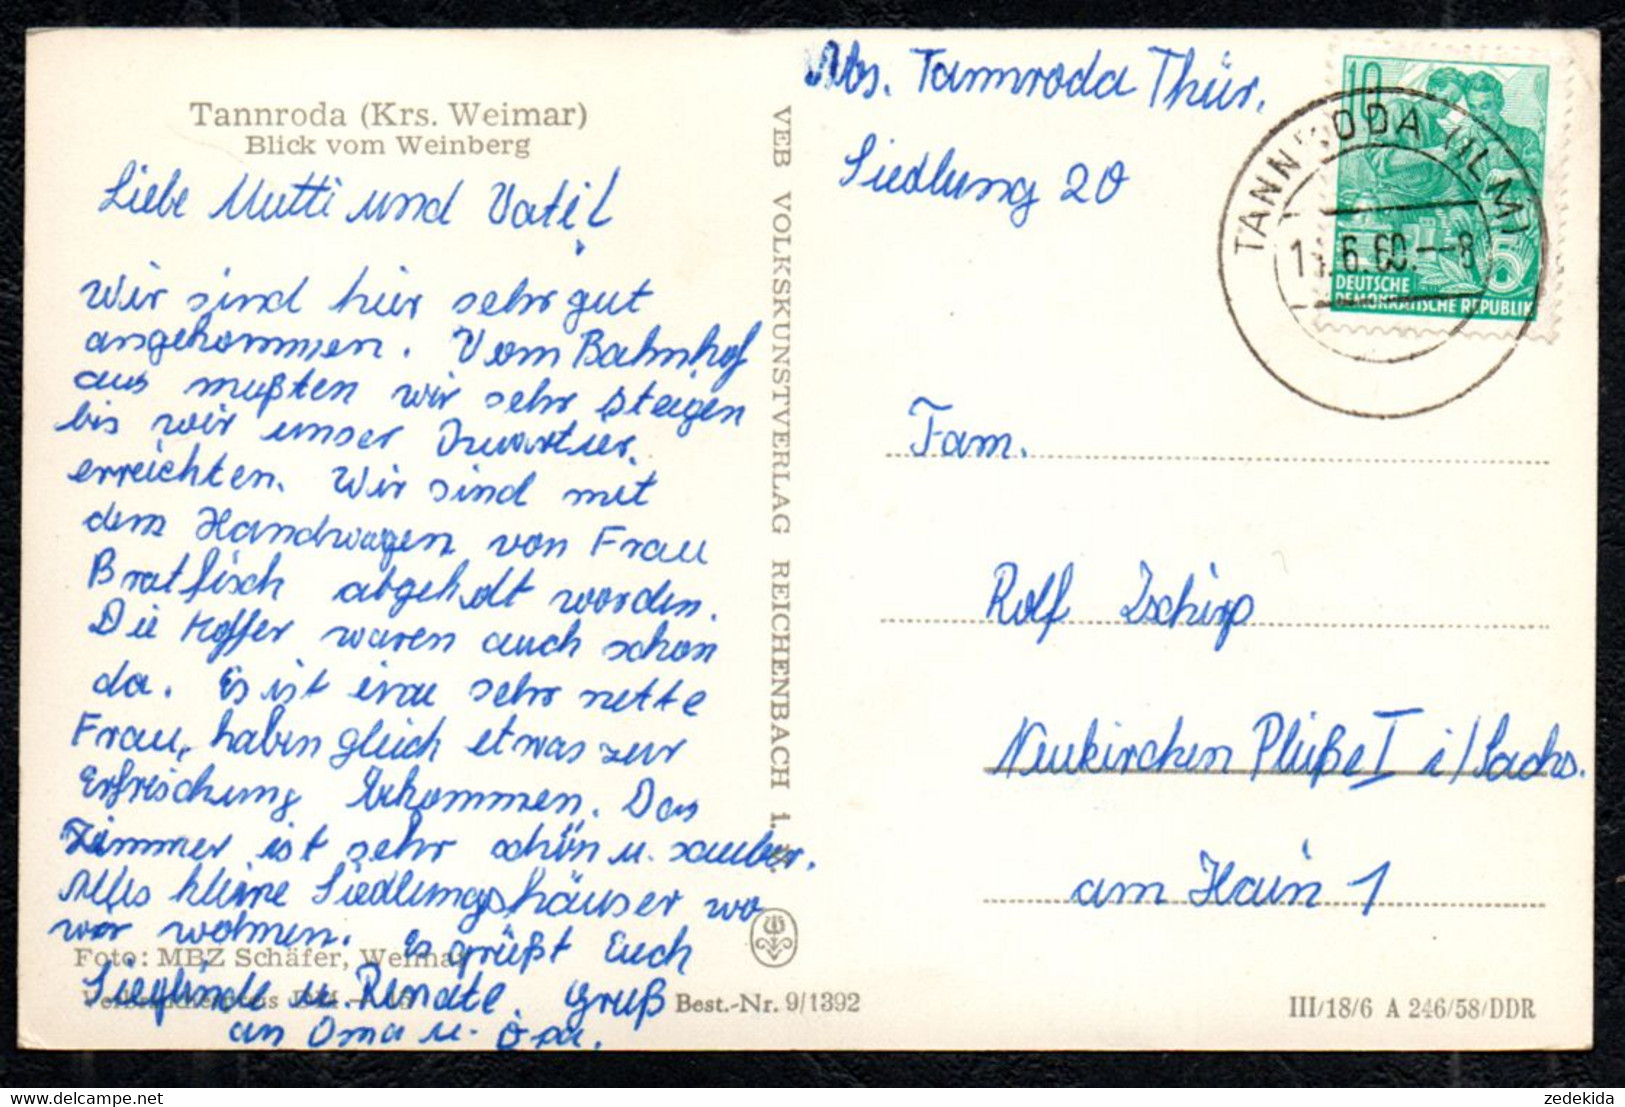 Tannroda (Krs. Weimar)
Blick vom Weinberg
Liebe Mutti und Vati!
Wir sind hier sehr gut
angekommen. Vom Bahnhof
aus mußten wir sehr steigen
bis wir unser Quartier.
erreichten. Wir sind mit
dem Handwagen von Frau
Bratfisch abgeholt worden.
Die Koffer waren auch schon
da. Es ist eine sehr nette
Frau, haben gleich etwas zur
Erfrischung bekommen. Das
Zimmer ist sehr schön u. sauber.
Alles kleine Siedlungshäuser wo
wir wohnen. Es grüßt Euch
Foto: MBZ Schäfer, Weimar
Sieglinde u. Renate. Gruß
an Oma u. Opa.
Best.-Nr. 9/1392
VEB VOLKSKUNSTVERLAG REICHENBACH i. V.
Abs. Tannroda Thür.
Siedlung 20
10
TANNRODA (ILM)
6.60.--8
5
DEUTSCHE
DEMOKRATISCHE REPUBLIK
Fam.
Rolf Zschirp
Neukirchen Pleiße I i/Sachs.
am Hain 1
III/18/6 A 246/58/DDR
zedekida